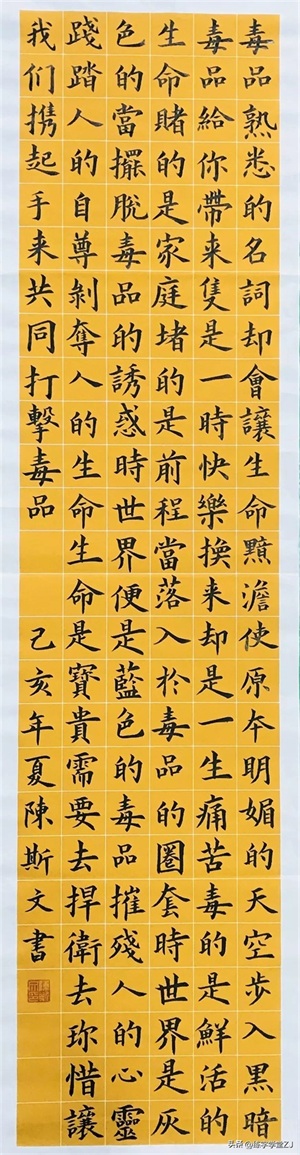 毒品熟悉的名詞却會讓生命黯澹使原本明媚的天空步入黑暗
毒品給你帶来隻是一時快樂換来却是一生痛苦毒的是鮮活的
生命賭的是家庭堵的是前程當落入於毒品的圈套時世界是灰
色的當擺脫毒品的誘惑時世界便是藍色的毒品摧殘人的心靈
踐踏人的自尊剝奪人的生命生命是寶貴需要去捍衛去珎惜讓
我们携起手来共同打擊毒品
己亥年夏陳斯文書
头条 @练字学堂ZJ